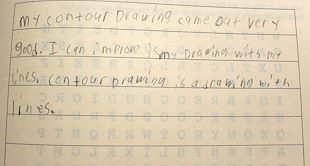 my contour Drawing came out very
good. I can improve is my Drawing with my
lines. contour Drawing is a drawing with
lines.